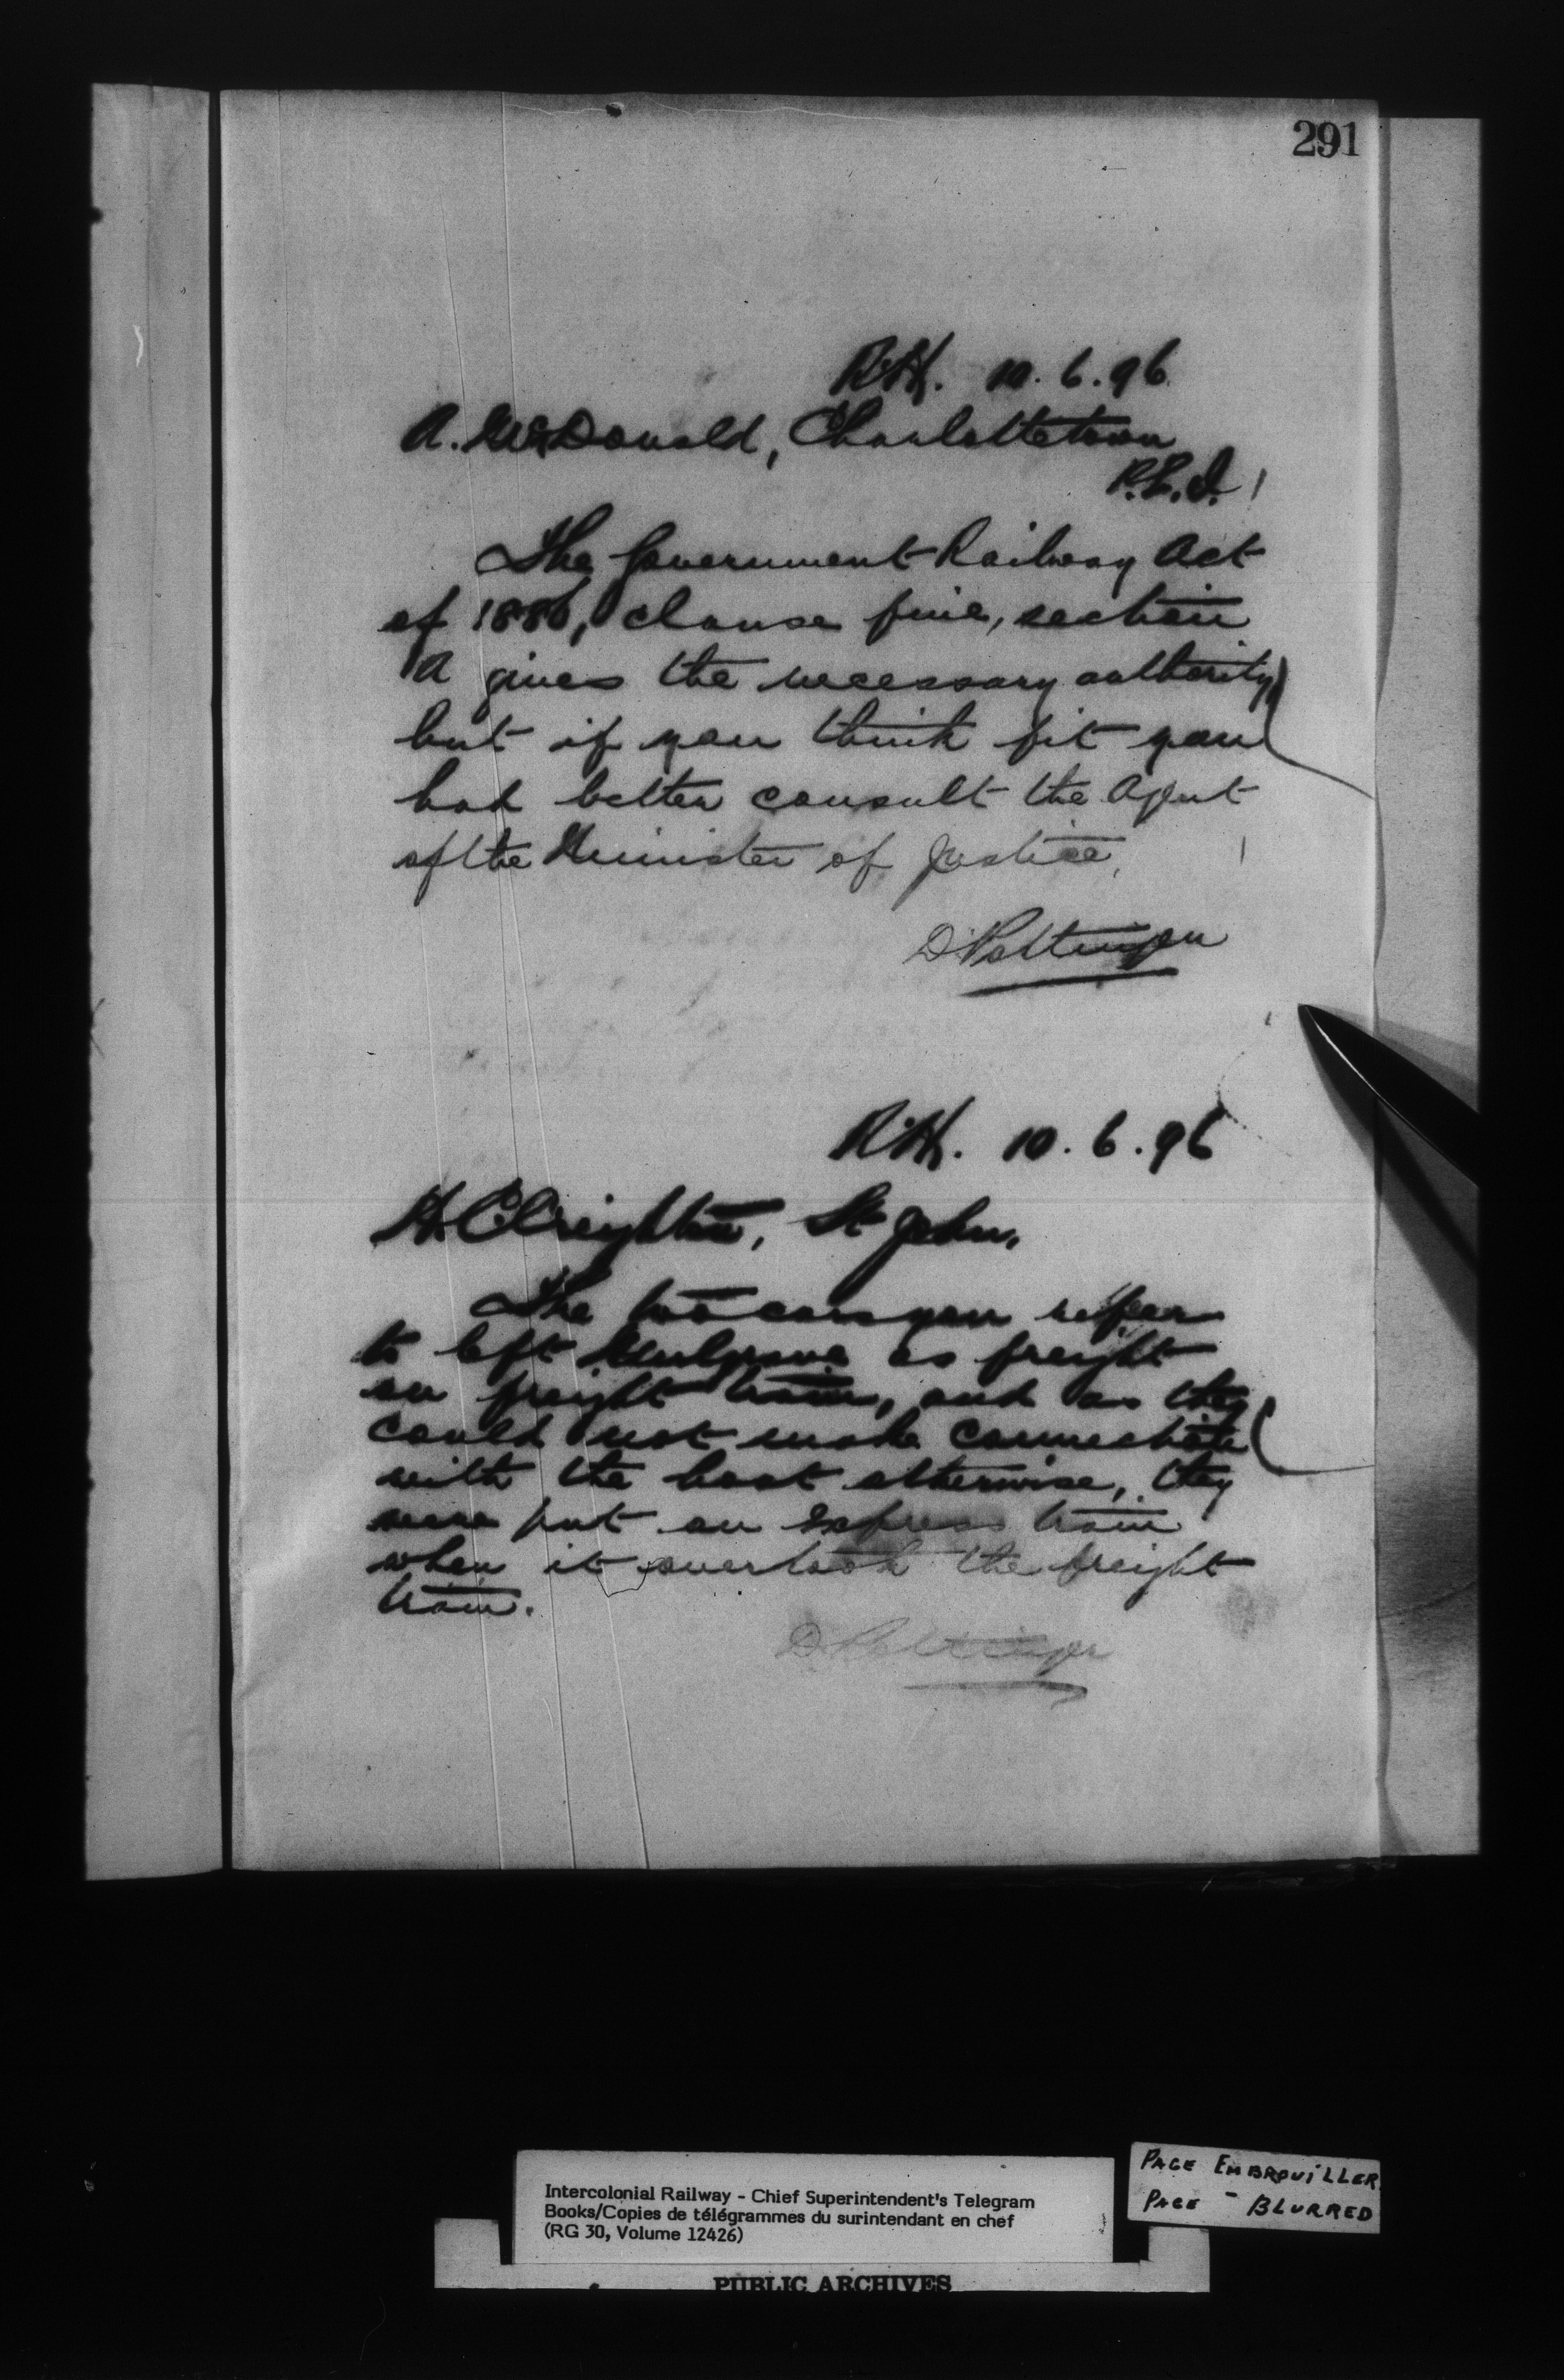 291
R.H. 10.6.96
A. McDonald, Charlottetown
P.E.I.
The Government Railway Act
of 1886, clause five, section
A gives the necessary authority
but if you think fit you
had better consult the Agent
of the Minister of Justice,
D Pottinger
R.H. 10.6.96
H. C. Creighton, St John.
The two cars you refer
to left Mulgrave as freight
on freight train, and as they
could not make connection
with the boat otherwise, they
were put on Express train
when it overtook the freight
train.
D Pottinger
PAGE EMBROUILLER
PAGE - BLURRED
Intercolonial Railway - Chief Superintendent's Telegram
Books/Copies de télégrammes du surintendant en chef
(RG 30, Volume 12426)
PUBLIC ARCHIVES